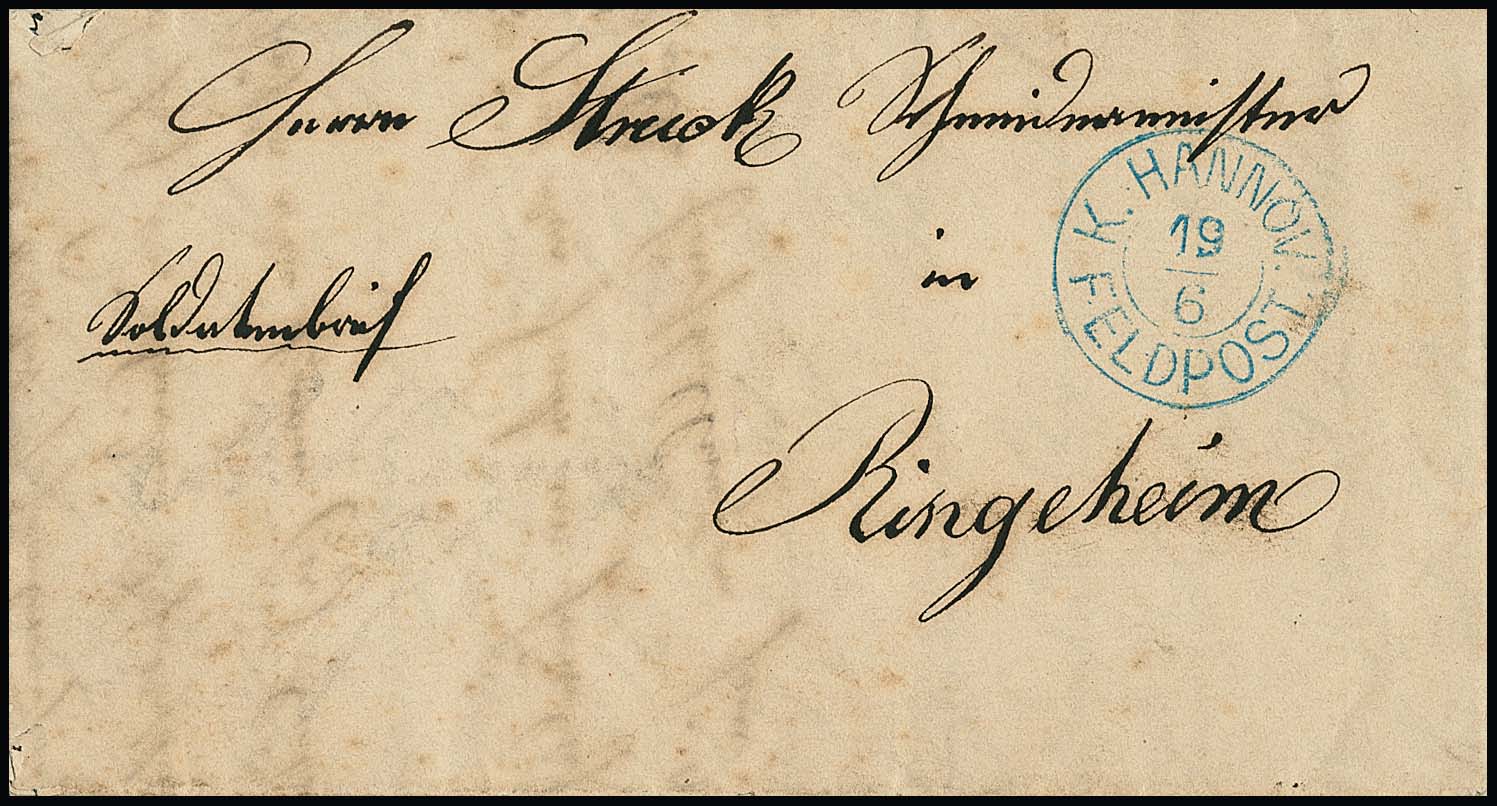 Herrn Struck Schneidermeister
in
Soldatenbrief
Ringelheim
K. HANNOV.
19
6
FELDPOST.